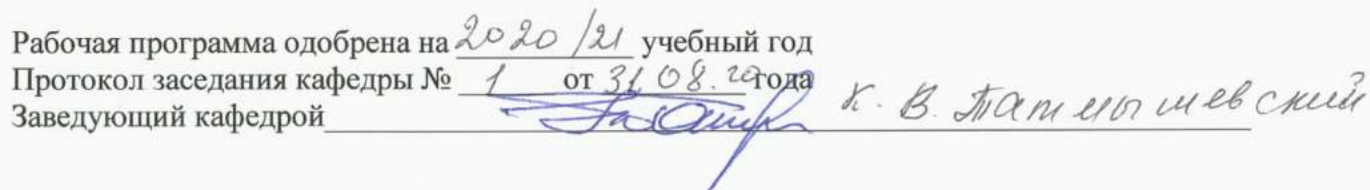 Рабочая программа одобрена на 2020/21 учебный год
Протокол заседания кафедры № 1 от 31.08.20 года
Заведующий кафедрой К. В. Татмышевский